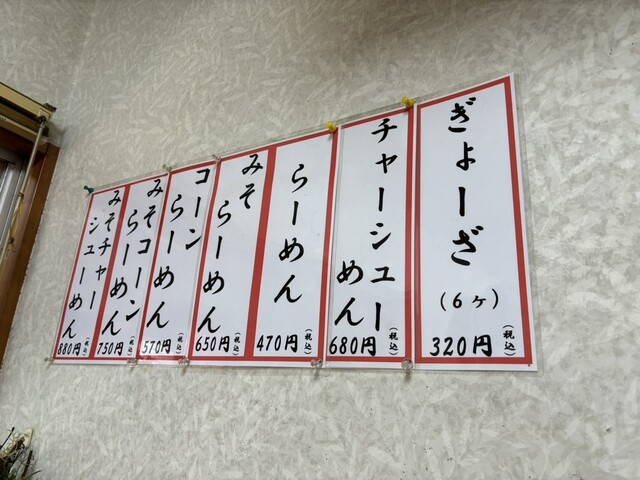 ぎょーざ
(6ヶ)
320円(税込)
チャーシュー
めん
680円(税込)
らーめん
470円(税込)
みそ
らーめん
650円(税込)
コーン
らーめん
570円(税込)
みそコーン
らーめん
750円(税込)
みそチャー
シューめん
880円(税込)